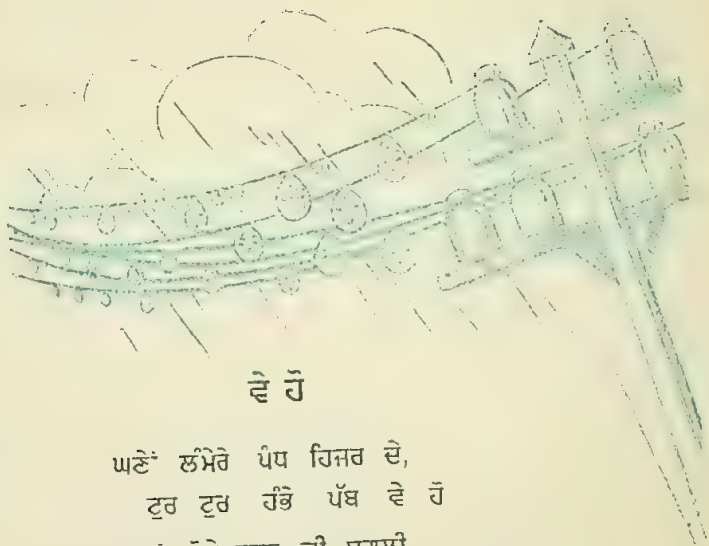 ਵੇ ਹੋ
ਘਣੇਂ ਲੰਮੇਰੇ ਪੰਧ ਹਿਜਰ ਦੇ,
ਟੁਰ ਟੁਰ ਹੰਭੇ ਪੱਬ ਵੇ ਹੋ